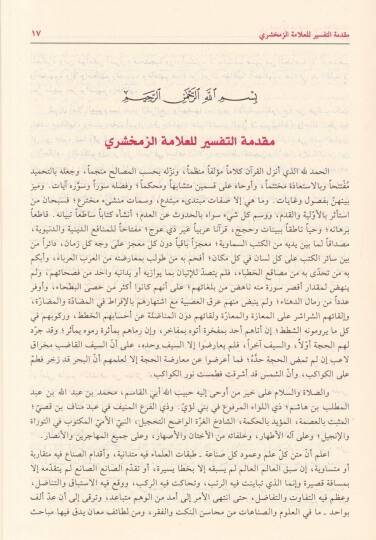 مقدمة التفسير للعلامة الزمخشري
١٧
بسم الله الرحمن الرحيم
مقدمة التفسير للعلامة الزمخشري
الحمد لله الذي أنزل القرآن كلاماً مؤلفاً منظماً، ونزّله بحسب المصالح منجماً، وجعله بالتحميد
مُفْتَتحاً وبالاستعاذة مختتماً، وأوحاه على قسمين متشابهاً ومحكماً؛ وفصله سوراً وسوّره آيات. وميز
بينهن بفصول وغايات. وما هي إلا صفات مبتدىء مبتدع، وسمات منشىء مخترع؛ فسبحان من
استأثر بالأوّلية والقدم، ووسم كل شيء سواه بالحدوث عن العدم؛ أنشأه كتاباً ساطعاً تبيانه. قاطعاً
برهانه؛ وحياً ناطقاً ببينات وحجج، قرآنا عربياً غير ذي عوج؛ مفتاحاً للمنافع الدينية والدنيوية،
مصداقاً لما بين يديه من الكتب السماوية؛ معجزاً باقياً دون كل معجز على وجه كل زمان، دائراً من
بين سائر الكتب على كل لسان في كل مكان؛ أفحم به من طولب بمعارضته من العرب العرباء، وأبكم
به من تحدّى به من مصاقع الخطباء، فلم يتصدّ للإتيان بما يوازيه أو يدانيه واحد من فصحائهم، ولم
ينهض لمقدار أقصر سورة منه ناهض من بلغائهم؛ على أنهم كانوا أكثر من حصى البطحاء، وأوفر
عدداً من رمال الدهناء؛ ولم ينبض منهم عرق العصبية مع اشتهارهم بالإفراط في المضادّة والمضارّة،
وإلقائهم الشراشر على المعازة والمعارّة ولقائهم دون المناضلة عن أحسابهم الخطط، وركوبهم في
كل ما يرومونه الشطط؛ إن أتاهم أحد بمفخرة أتوه بمفاخر، وإن رماهم بمأثرة رموه بمآثر؛ وقد جرّد
لهم الحجة أوّلاً، والسيف آخراً، فلم يعارضوا إلا السيف وحده، على أنّ السيف القاضب مخراق
لاعب إن لم تمض الحجة حدّه؛ فما أعرضوا عن معارضة الحجة إلا لعلمهم أنّ البحر قد زخر فطمّ
على الكواكب، وأنّ الشمس قد أشرقت فطمست نور الكواكب.
والصلاة والسلام على خير من أوحى إليه حبيب الله أبي القاسم، محمد بن عبد الله بن عبد
المطلب بن هاشم؛ ذي اللواء المرفوع في بني لؤيّ. وذي الفرع المنيف في عبد مناف بن قصيّ؛
المثبت بالعصمة، المؤيد بالحكمة، الشادخ الغرّة الواضح التحجيل، النبيّ الأميّ المكتوب في التوراة
والإنجيل؛ وعلى آله الأطهار، وخلفائه من الأختان والأصهار، وعلى جميع المهاجرين والأنصار.
اعلم أنّ متن كلّ علم وعمود كل صناعة ـ طبقات العلماء فيه متدانية، وأقدام الصناع فيه متقاربة
أو متساوية، إن سبق العالم العالم لم يسبقه إلا بخطا يسيرة، أو تقدّم الصانع الصانع لم يتقدّمه إلا
بمسافة قصيرة وإنما الذي تباينت فيه الرتب، وتحاكت فيه الركب، ووقع فيه الاستباق والتناضل،
وعظم فيه التفاوت والتفاضل، حتى انتهى الأمر إلى أمد من الوهم متباعد، وترقى إلى أن عدّ ألف
بواحد ـ ما في العلوم والصناعات من محاسن النكت والفقر، ومن لطائف معان يدق فيها مباحث